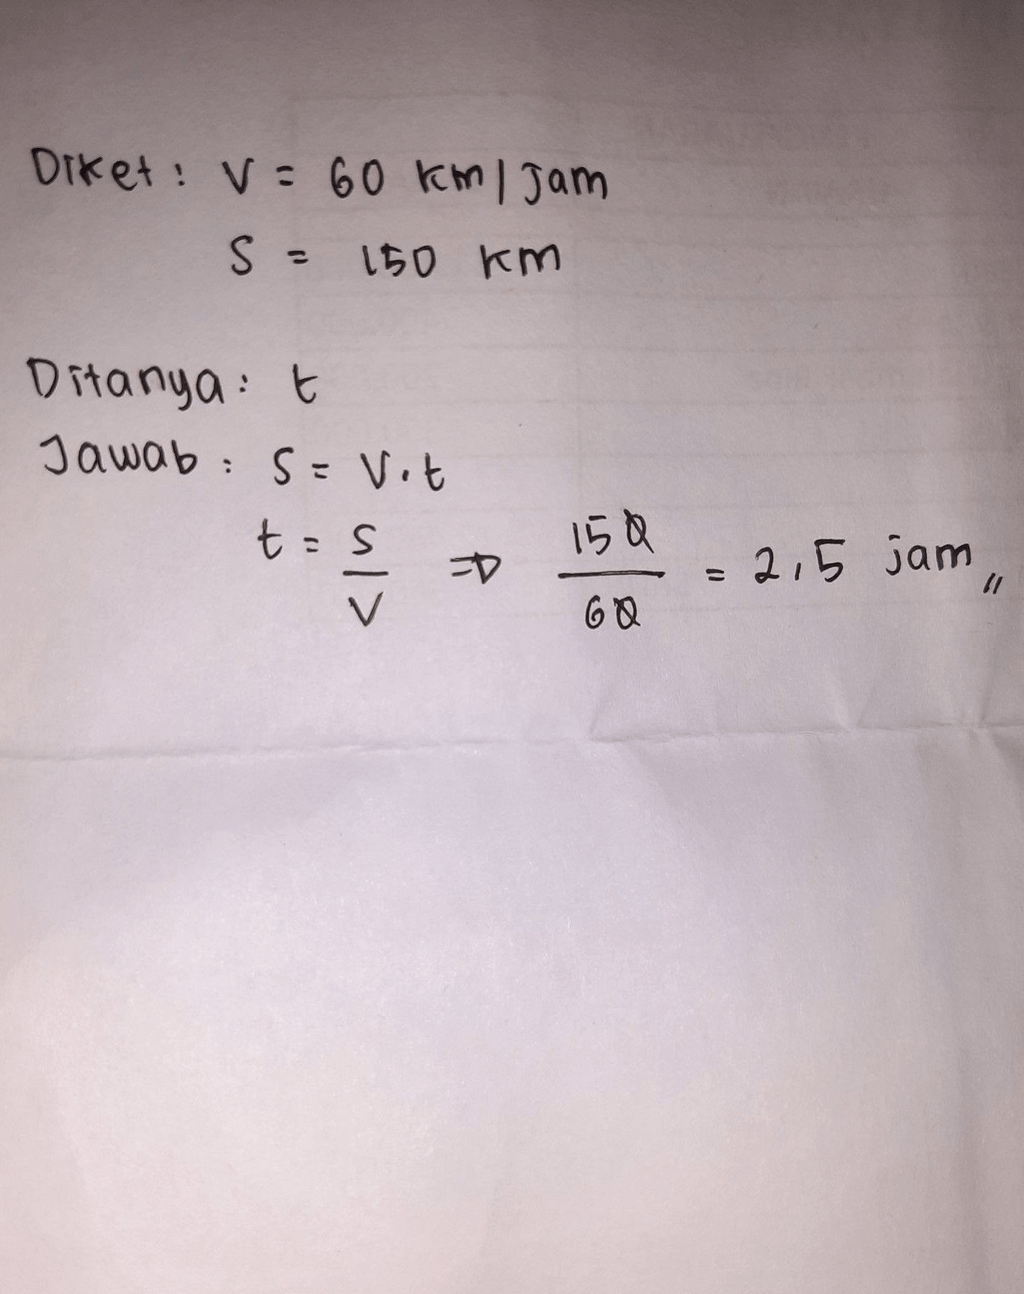 Diket : V = 60 km/Jam
S = 150 km
Ditanya : t
Jawab : S = V.t
t = S/V ⇒ 150/60 = 2,5 jam,,